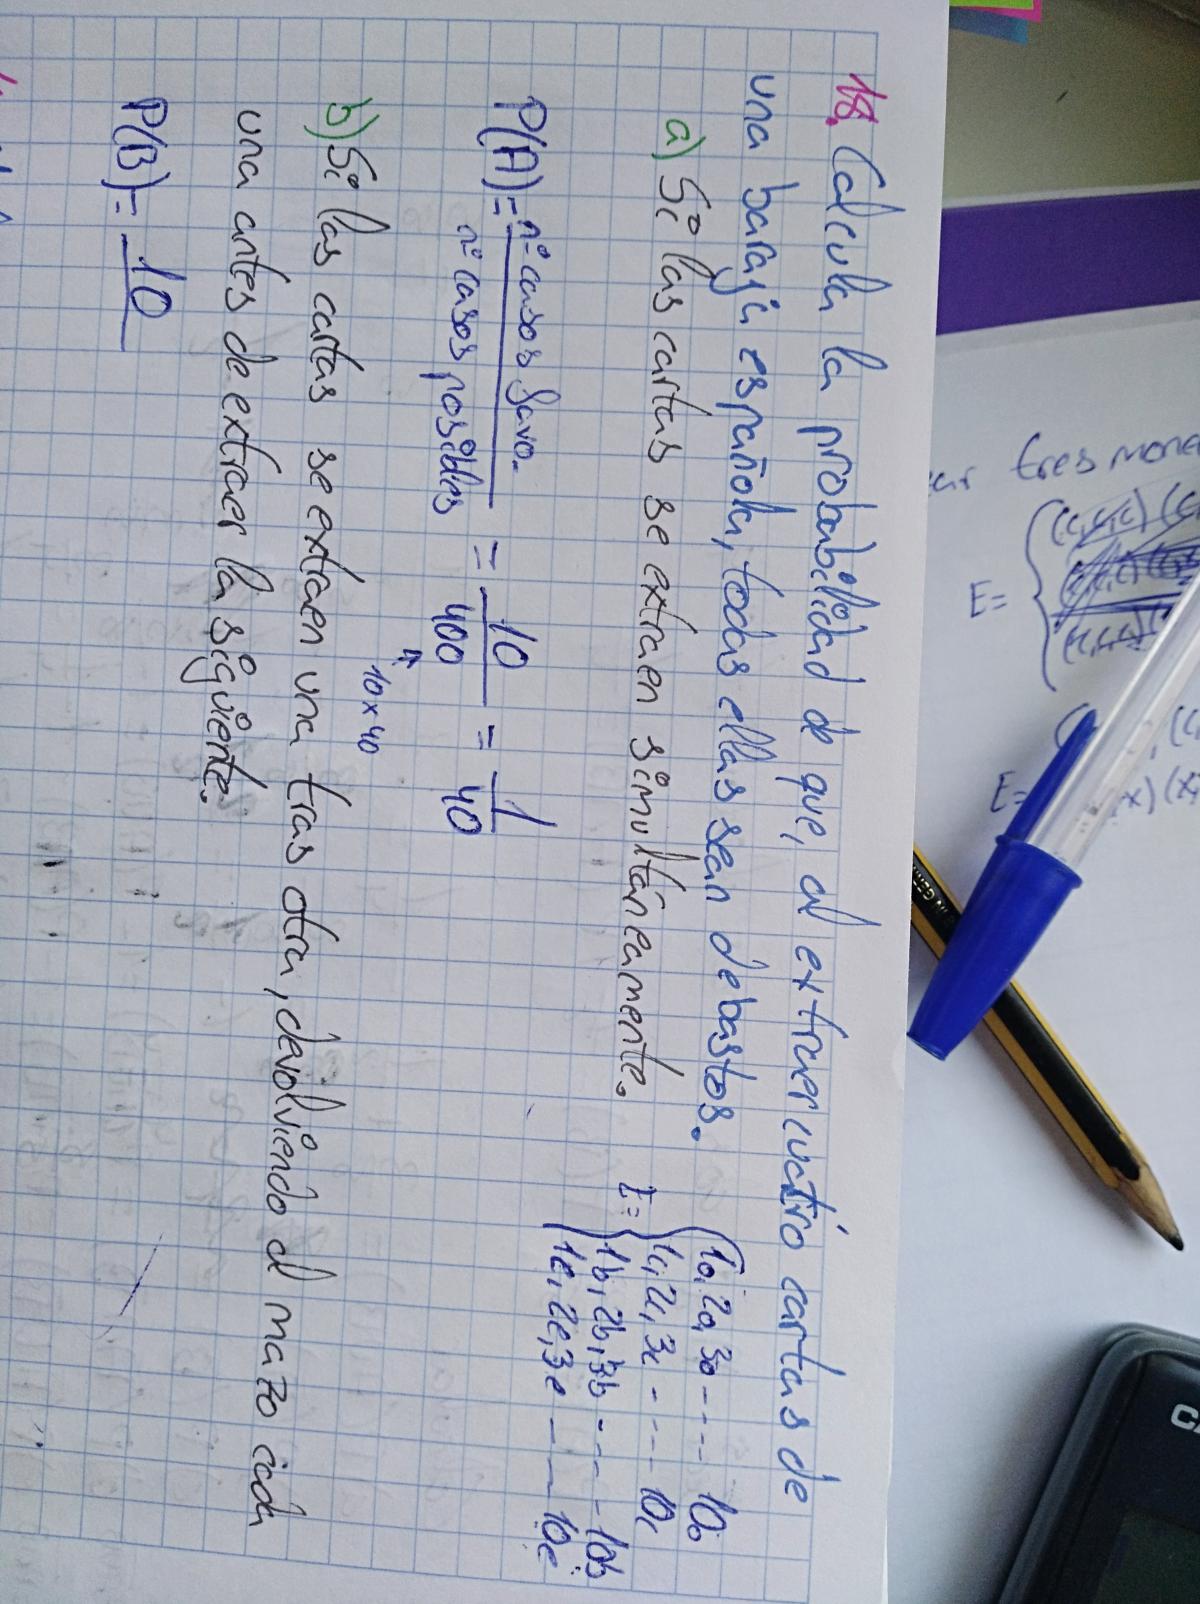 18. Calcula la probabilidad de que, al extraer cuatro cartas de
una baraja española, todas ellas sean de bastos.
a) Si las cartas se extraen simultáneamente.
E= { 1o, 2o, 3o ---- 10o
1c, 2c, 3c ---- 10c
1b, 2b, 3b ---- 10b
1e, 2e, 3e ---- 10e
P(A)= nº casos favo. / nº casos posibles = 10 / 400 = 1 / 40
10x40
b) Si las cartas se extraen una tras otra, devolviendo al mazo cada
una antes de extraer la siguiente.
P(B)= 10
tres mone
E= {
E=